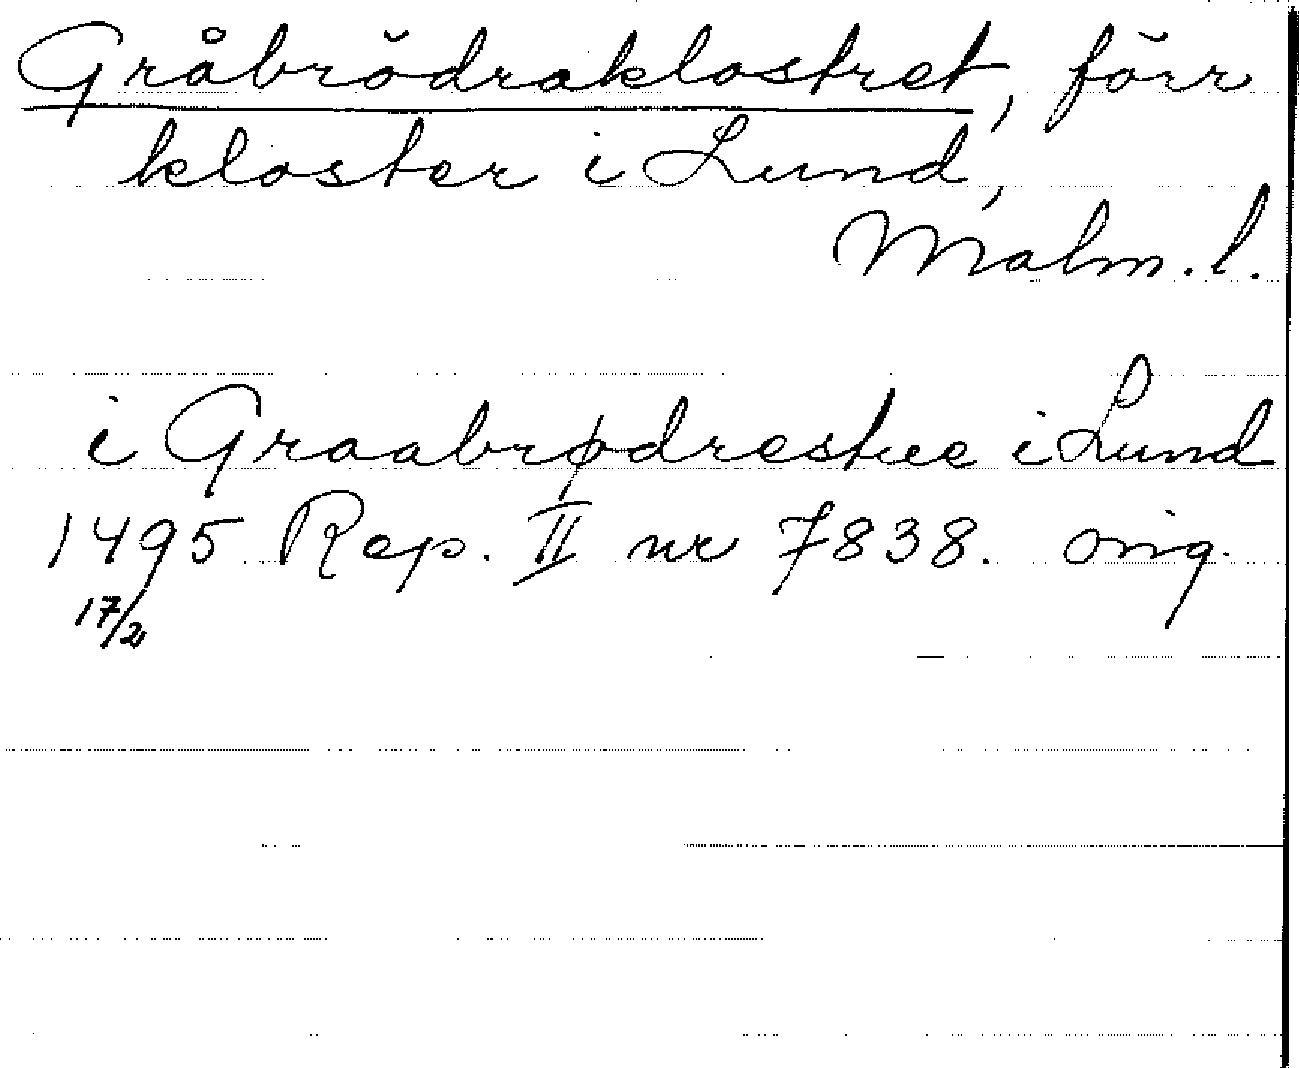 Gråbrödraklostret, förr
kloster i Lund,
Malm. l.
i Graabrødrestue i Lund
1495 Rep. II nr 7838. orig.
17/2